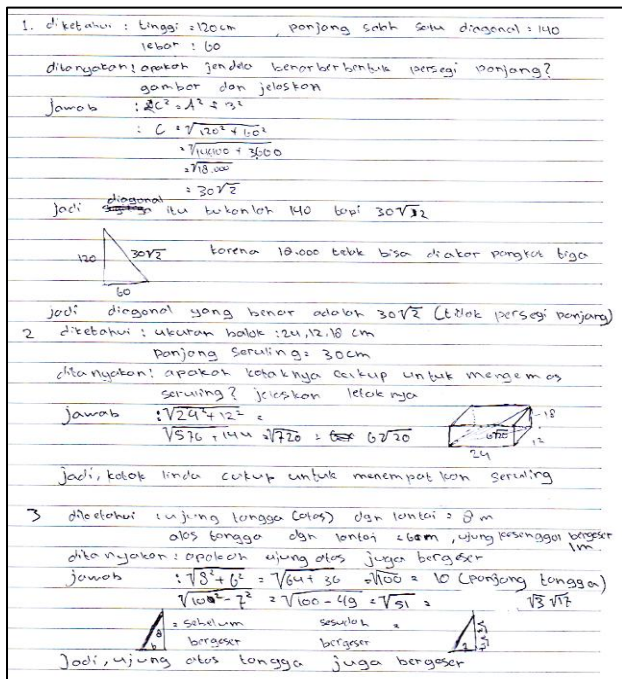 1. diketahui : tinggi = 120 cm , panjang salah satu diagonal = 140
lebar : 60
ditanyakan : apakah jendela benar berbentuk persegi panjang?
gambar dan jelaskan
jawab : C² = A² + B²
: C = √120² + 60²
= √14400 + 3600
= √18.000
= 30√2
jadi diagonal itu bukanlah 140 tapi 30√2
120 30√2 karena 18.000 tidak bisa diakar pangkat tiga
60
jadi diagonal yang benar adalah 30√2 (tidak persegi panjang)
2 diketahui : ukuran balok : 24, 12, 18 cm
panjang seruling = 30 cm
ditanyakan : apakah kotaknya cukup untuk mengemas
seruling? jelaskan letaknya
jawab : √24²+12² =
√576 + 144 = √720 = 6√20
6√20
18
12
24
jadi, kotak linda cukup untuk menempatkan seruling
3 diketahui : ujung tangga (atas) dgn lantai = 8 m
alas tangga dgn lantai = 6m , ujung bergeser
1m.
ditanyakan : apakah ujung atas juga bergeser
jawab : √8² + 6² = √64 + 36 = √100 = 10 (panjang tangga)
√10² - 7² = √100 - 49 = √51 = √3 √17
8 6 = sebelum sesudah = 7
bergeser bergeser
Jadi, ujung atas tangga juga bergeser